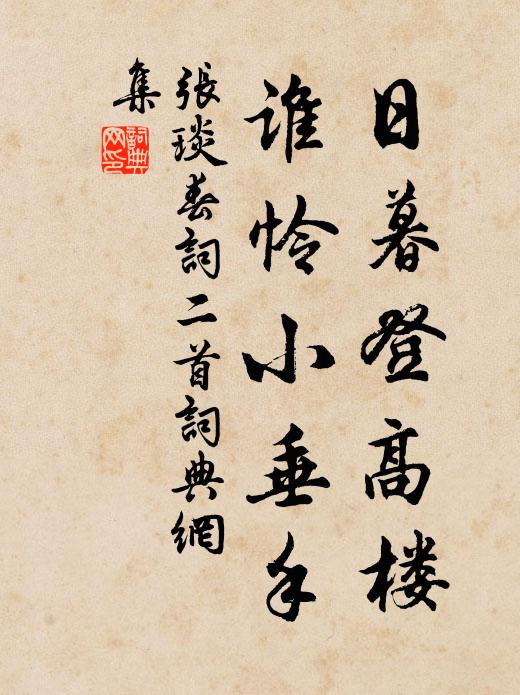 日暮登高楼
谁怜小垂手
張琰春詞二首詞典網
集
詞典網印